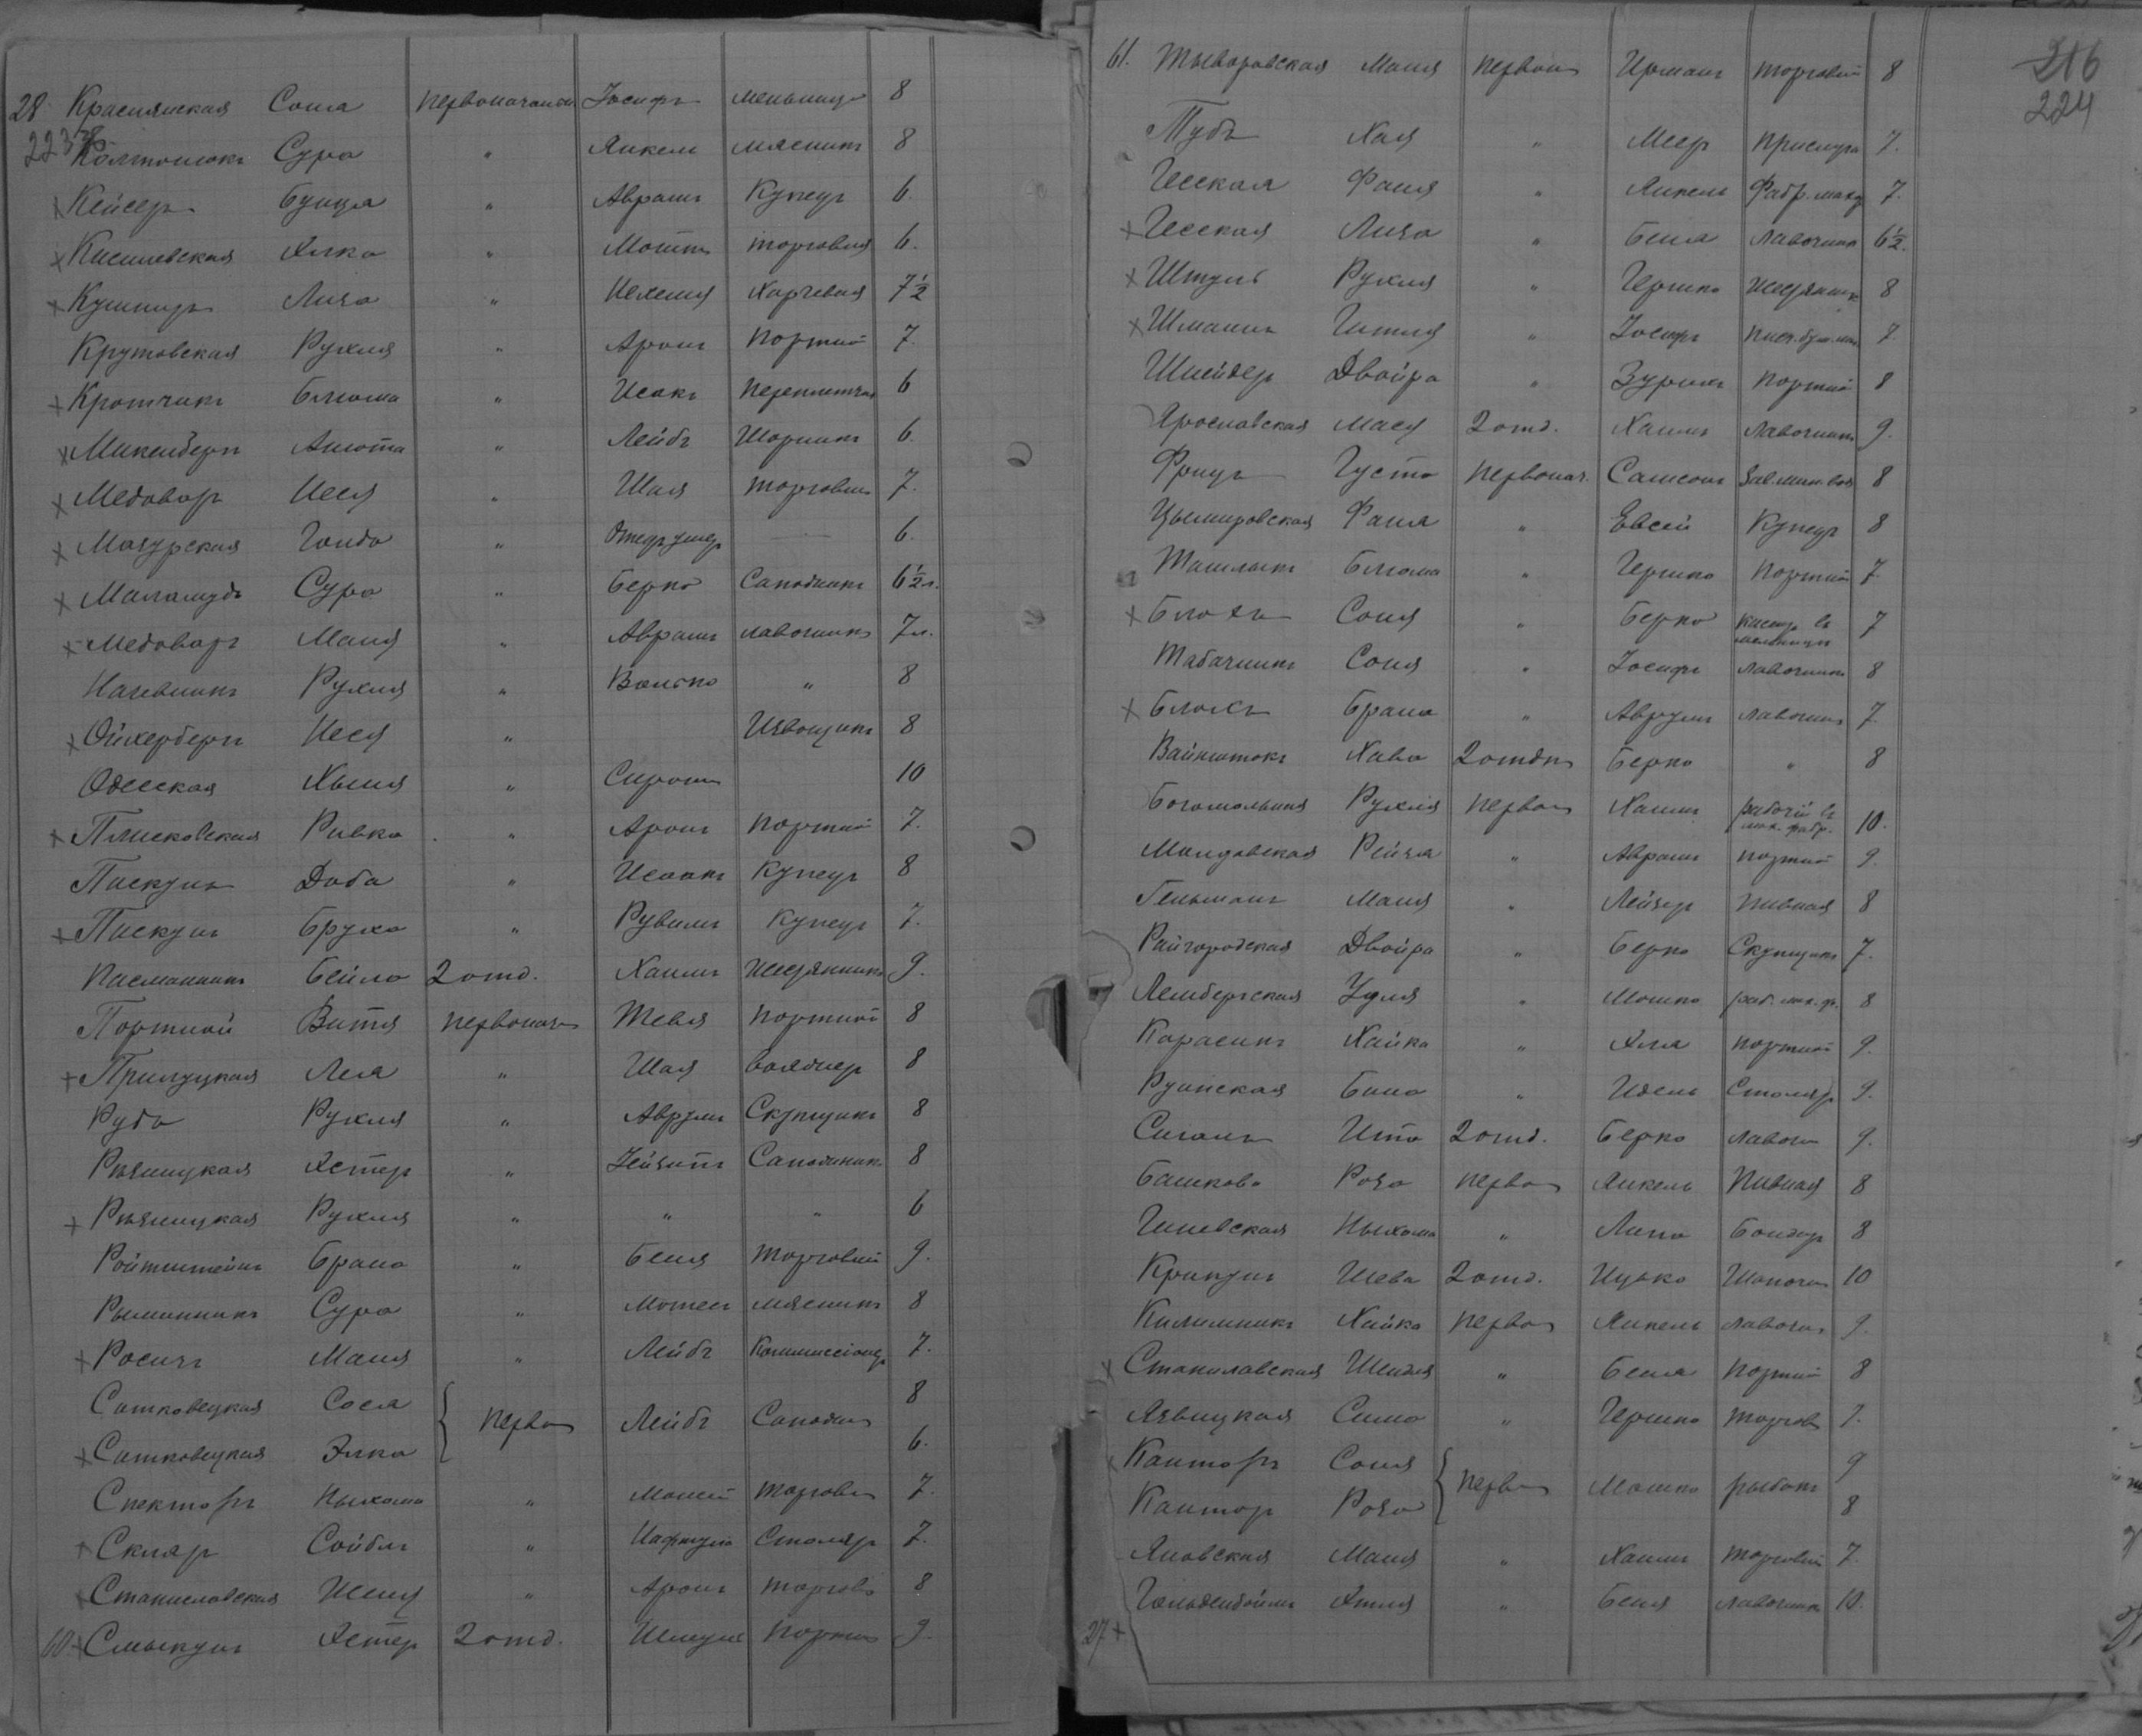 28 Краснянская Соня первоначальн Іосифъ мельница 8
223 Колтонюкъ Сура " Янкель мясникъ 8
x Кейсеръ Бунця " Аврамъ Купецъ 6.
x Кисилевская Хика " Мошко торговля 6.
x Кушниръ Лиза " Ихехиля Харчевая 7½
Крутовская Рухля " Аронъ портной 7.
x Кротчикъ Блюма " Исакъ переплетчикъ 6
x Миненбергъ Анюта " Лейбъ Шорникъ 6.
x Медоваръ Неся " Шая торговля 7.
x Мазурская Голда " Отецъ умеръ — 6.
x Маламудъ Сура " Берко Сапожникъ 6½ л.
x Медоваръ Маня " Аврамъ лавочникъ 7 л.
Рухля " Волько " 8
x Ойхербергъ Неся " Извощикъ 8
Одесская Хыня " Сирота 10
x Плисковская Ривка " Аронъ портной 7.
Пискунъ Доба " Исаакъ Купецъ 8
x Пискунъ Бруха " Рувимъ Купецъ 7.
Пасманникъ Бейла 2 отд. Хаимъ Шицянникъ 9.
Портной Витя первонач Тевя портной 8
x Прилуцкая Лея " Шая вояжеръ 8
Рудь Рухля " Аврумъ Скупщикъ 8
Ржяницкая Хстер " Зейзитъ Сапожник 8
x Ржяницкая Рухля " " " 6
Ройтштейнъ Брана " Беня торговый 9.
Рыманникъ Сура " Мотель мясникъ 8
x Росинъ Маня " Лейбъ Коммиссіонеръ 7.
Сатковецкая Сося { первон Лейбъ Сапожн 8
x Сатковецкая Элка 6.
Спекторъ Ныхама " Мошей торгов 7.
x Скляр Сойбль " Нафтула Столяр 7.
x Станиславская Шеня " Аронъ торгов 8
60 x Смыкунъ Хстер 2 отд. Шмуль портн 9.
61. Тываровская Маня первон Ицманъ торговый 8
216
224
Рудъ Хая " Меер прислуга 7.
Чесская Фаня " Янкель Фабр. мах 7.
x Чесская Лиза " Беня лавочник 6½.
x Штуль Рухля " Гершко Шицянник 8
x Шманъ Гитля " Іосифъ 7
Шнейдер Двойра " Зурихъ портной 8
Ярославская Мася 2 отд. Хаимъ лавочникъ 9.
Фрицъ Густа первонач. Самсонъ Зав. мин. вод 8
Цымировская Фаня " Евсей Купецъ 8
Ташлыкъ Блюма " Гершко портной 7.
x Блохъ Соня " Берко кассиръ въ мельницѣ 7
Табачникъ Соня " Іосифъ лавочникъ 8
x Блохъ Брана " Аврумъ лавочн 7.
Вайнштокъ Хава 2 отдѣл Берко " 8
Богомольная Рухля первон Хаимъ рабочій въ мах. фабр. 10.
Молдовская Рейзя " Аврамъ портной 9.
Гельманъ Маня " Лейзеръ пивная 8
Райгородская Двойра " Берко Скупщикъ 7.
Лембергская Удля " Мошко раб. мах. ф. 8
Карасикъ Хайка " Хля портной 9.
Руанская Бина " Идель Столяр 9.
Сиганъ Ита 2 отд. Берко лавочн 9.
Башкова Роза первон Янкель Пивная 8
Гиневская Ныхама " Липа Бондар 8
Крипунъ Шева 2 отд. Ицько Шапочн 10
Килимникъ Хайка первон Янкель лавочн 9.
x Станилавская Шендля " Беня портной 8
Язвицкая Сима " Гершко торгов 7.
x Канторъ Соня { первон Мошко рыбакъ 9
Кантор Роза 8
Яновская Маня " Хаимъ торговый 7.
Гольденбойлъ Хтля " Беня лавочник 10.
27 +